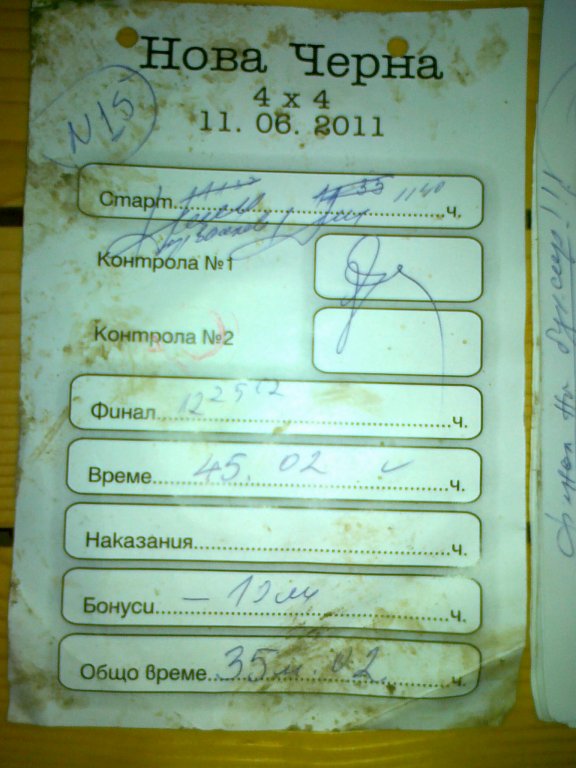 Нова Черна
4 x 4
11. 06. 2011
N15
Старт 1140 ч.
Контрола №1
Контрола №2
Финал 12 25 02 ч.
Време 45. 02 ч.
Наказания ч.
Бонуси – 10 м ч.
Общо време 35м. 02 ч.